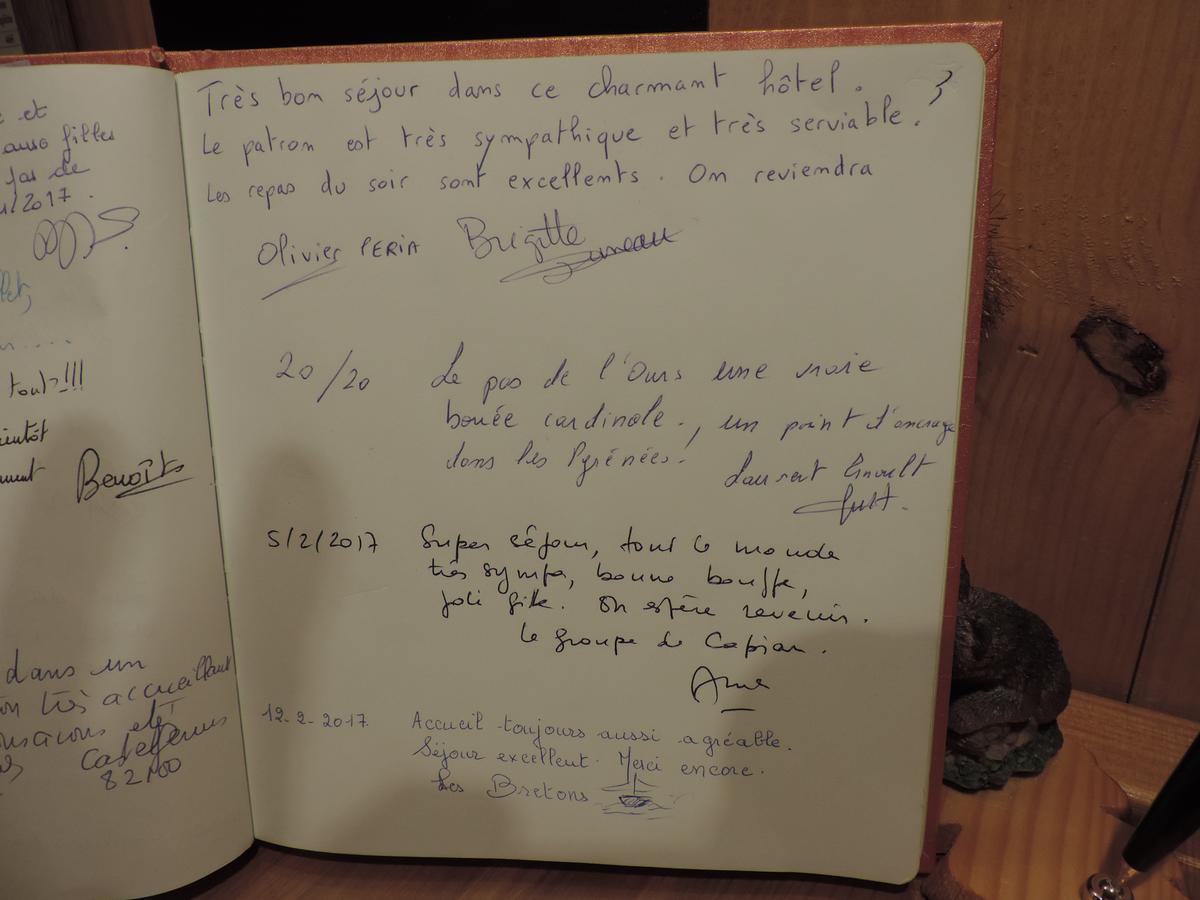 et
filles
de
/2017.
tout !!!
Benoîts
dans un
très accueillant
Castelferrus
82100
3
Très bon séjour dans ce charmant hôtel.
Le patron est très sympathique et très serviable.
Les repas du soir sont excellents. On reviendra
Olivier PERIA Brigitte
20/20 Le pas de l'Ours une vraie
bouée cardinale., un point d'ancrage
dans les Pyrénées.
Laurent
5/2/2017 Super séjour, tout le monde
très sympa, bonne bouffe,
joli gîte. On espère revenir.
le groupe de Capian.
Anne
12-2-2017 Accueil toujours aussi agréable.
Séjour excellent. Merci encore.
Les Bretons